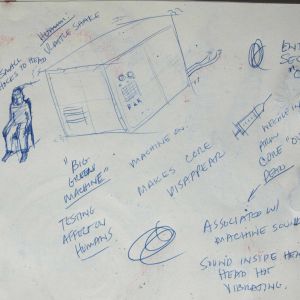 HUMM
RATTLE SHAKE
SMALL
HOLES TO HEAD
"BIG
GREEN
MACHINE"
TESTING
AFFECT ON
HUMANS
MACHINE ON.
MAKES CORE
DISAPPEAR
NEEDLE IN
ARM
CORE "D
DEAD
ASSOCIATED W/
MACHINE SOUND
SOUND INSIDE HEAD
HEAD HOT
VIBRATING.